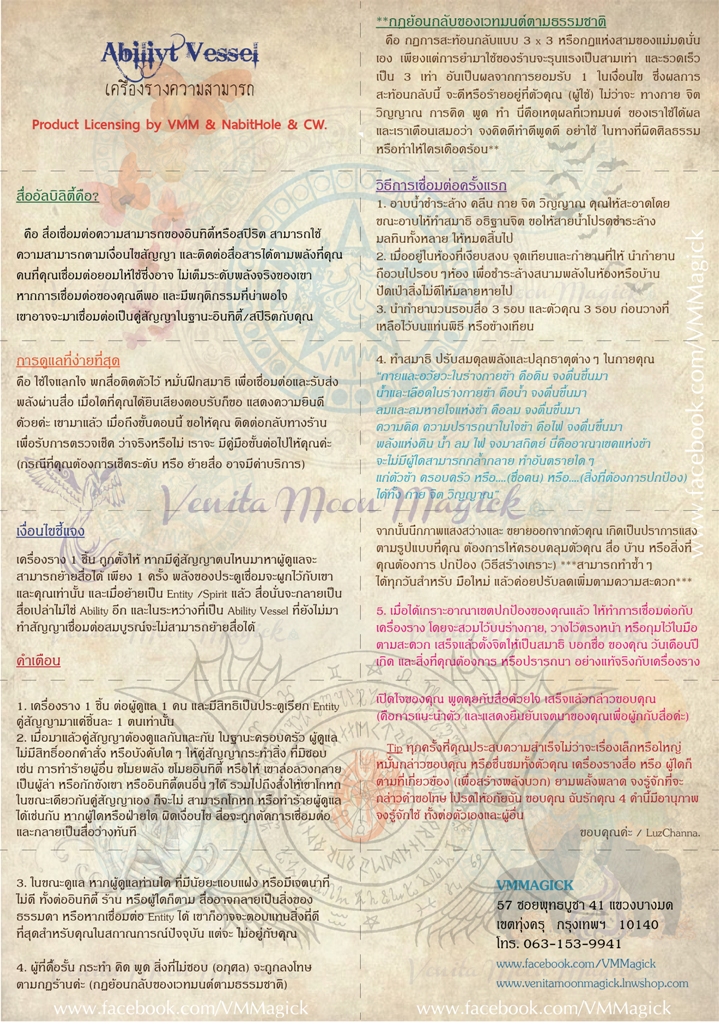 Abiliyt Vessel
เครื่องรางความสามารถ
Product Licensing by VMM & NabitHole & CW.
สื่ออัลบิลิตี้คือ?
คือ สื่อเชื่อมต่อความสามารถของอินทิตี้หรือสปิริต สามารถใช้
ความสามารถตามเงื่อนไขสัญญา และติดต่อสื่อสารได้ตามพลังที่คุณ
คนที่คุณเชื่อมต่อยอมให้ใช้ซึ่งอาจ ไม่เต็มระดับพลังจริงของเขา
หากการเชื่อมต่อของคุณดีพอ และมีพฤติกรรมที่น่าพอใจ
เขาอาจจะมาเชื่อมต่อเป็นคู่สัญญาในฐานะอินทิตี้/สปิริตกับคุณ
การดูแลที่ง่ายที่สุด
คือ ใช้ใจแลกใจ พกสื่อติดตัวไว้ หมั่นฝึกสมาธิ เพื่อเชื่อมต่อและรับส่ง
พลังผ่านสื่อ เมื่อใดที่คุณได้ยินเสียงตอบรับก็ขอ แสดงความยินดี
ด้วยค่ะ เขามาแล้ว เมื่อถึงขั้นตอนนี้ ขอให้คุณ ติดต่อกลับทางร้าน
เพื่อรับการตรวจเช็ค ว่าจริงหรือไม่ เราจะ มีคู่มือขั้นต่อไปให้คุณค่ะ
(กรณีที่คุณต้องการเช็คระดับ หรือ ย้ายสื่อ อาจมีค่าบริการ)
เงื่อนไขชี้แจง
เครื่องราง 1 ชิ้น ถูกตั้งให้ หากมีคู่สัญญาตนไหนมาหาผู้ดูแลจะ
สามารถย้ายสื่อได้ เพียง 1 ครั้ง พลังของประตูเชื่อมจะผูกไว้กับเขา
และคุณเท่านั้น และเมื่อย้ายเป็น Entity /Spirit แล้ว สื่อนั่นจะกลายเป็น
สื่อเปล่าไม่ใช่ Ability อีก และในระหว่างที่เป็น Ability Vessel ที่ยังไม่มา
ทำสัญญาเชื่อมต่อสมบูรณ์จะไม่สามารถย้ายสื่อได้
คำเตือน
1. เครื่องราง 1 ชิ้น ต่อผู้ดูแล 1 คน และมีสิทธิเป็นประตูเรียก Entity
คู่สัญญามาแค่ชิ้นละ 1 ตนเท่านั้น
2. เมื่อมาแล้วคู่สัญญาต้องดูแลกันและกัน ในฐานะครอบครัว ผู้ดูแล
ไม่มีสิทธิ์ออกคำสั่ง หรือบังคับใดๆ ให้คู่สัญญากระทำสิ่ง ที่มิชอบ
เช่น การทำร้ายผู้อื่น ขโมยพลัง ขโมยอินทิตี้ หรือให้ เขาล่อลวงกลาย
เป็นผู้ล่า หรือกักขังเขา หรืออินทิตี้ตนอื่น ๆได้ รวมไปถึงสั่งให้เขาโกหก
ในขณะเดียวกันคู่สัญญาเอง ก็จะไม่ สามารถโกหก หรือทำร้ายผู้ดูแล
ได้เช่นกัน หากผู้ใดหรือฝ่ายใด ผิดเงื่อนไข สื่อจะถูกตัดการเชื่อมต่อ
และกลายเป็นสื่อว่างทันที
3. ในขณะดูแล หากผู้ดูแลท่านใด ที่มีนัยยะแอบแฝง หรือมีเจตนาที่
ไม่ดี ทั้งต่ออินทิตี้ ร้าน หรือผู้ใดก็ตาม สื่ออาจกลายเป็นสิ่งของ
ธรรมดา หรือหากเชื่อมต่อ Entity ได้ เขาก็อาจจะตอบแทนสิ่งที่ดี
ที่สุดสำหรับคุณในสถานการณ์ปัจจุบัน แต่จะ ไม่อยู่กับคุณ
4. ผู้ที่ดื้อรั้น กระทำ คิด พูด สิ่งที่ไม่ชอบ (อกุศล) จะถูกลงโทษ
ตามกฏร้านค่ะ (กฏย้อนกลับของเวทมนต์ตามธรรมชาติ)
**กฏย้อนกลับของเวทมนต์ตามธรรมชาติ
คือ กฏการสะท้อนกลับแบบ 3 x 3 หรือกฏแห่งสามของแม่มดนั่น
เอง เพียงแต่การย้ำมาใช้ของร้านจะรุนแรงเป็นสามเท่า และรวดเร็ว
เป็น 3 เท่า อันเป็นผลจากการยอมรับ 1 ในเงื่อนไข ซึ่งผลการ
สะท้อนกลับนี้ จะดีหรือร้ายอยู่ที่ตัวคุณ (ผู้ใช้) ไม่ว่าจะ ทางกาย จิต
วิญญาณ การคิด พูด ทำ นี่คือเหตุผลที่เวทมนต์ ของเราใช้ได้ผล
และเราเตือนเสมอว่า จงคิดดีทำดีพูดดี อย่าใช้ ในทางที่ผิดศีลธรรม
หรือทำให้ใครเดือดร้อน**
วิธีการเชื่อมต่อครั้งแรก
1. อาบน้ำชำระล้าง คลีน กาย จิต วิญญาณ คุณให้สะอาดโดย
ขณะอาบให้ทำสมาธิ อธิฐานจิต ขอให้สายน้ำโปรดชำระล้าง
มลทินทั้งหลาย ให้หมดสิ้นไป
2. เมื่ออยู่ในห้องที่เงียบสงบ จุดเทียนและกำยานที่ให้ นำกำยาน
ถือวนไปรอบ ๆห้อง เพื่อชำระล้างสนามพลังในห้องหรือบ้าน
ปัดเป่าสิ่งไม่ดีให้มลายหายไป
3. นำกำยานวนรอบสื่อ 3 รอบ และตัวคุณ 3 รอบ ก่อนวางที่
เหลือไว้บนแท่นพิธี หรือข้างเทียน
4. ทำสมาธิ ปรับสมดุลพลังและปลุกธาตุต่าง ๆ ในกายคุณ
"กายและอวัยวะในร่างกายข้า คือดิน จงตื่นขึ้นมา
น้ำและเลือดในร่างกายข้า คือน้ำ จงตื่นขึ้นมา
ลมและลมหายใจแห่งข้า คือลม จงตื่นขึ้นมา
ความคิด ความปรารถนาในใจข้า คือไฟ จงตื่นขึ้นมา
พลังแห่งดิน น้ำ ลม ไฟ จงมาสถิตย์ นี่คืออาณาเขตแห่งข้า
จะไม่มีผู้ใดสามารถกล้ำกลาย ทำอันตรายใด ๆ
แก่ตัวข้า ครอบครัว หรือ....(ชื่อคน) หรือ....(สิ่งที่ต้องการปกป้อง)
ได้ทั้ง กาย จิต วิญญาณ"
จากนั้นนึกภาพแสงสว่างและ ขยายออกจากตัวคุณ เกิดเป็นปราการแสง
ตามรูปแบบที่คุณ ต้องการให้ครอบคลุมตัวคุณ สื่อ บ้าน หรือสิ่งที่
คุณต้องการ ปกป้อง (วิธีสร้างเกราะ) ***สามารถทำซ้ำ ๆ
ได้ทุกวันสำหรับ มือใหม่ แล้วค่อยปรับลดเพิ่มตามความสะดวก***
5. เมื่อได้เกราะอาณาเขตปกป้องของคุณแล้ว ให้ทำการเชื่อมต่อกับ
เครื่องราง โดยจะสวมไว้บนร่างกาย, วางไว้ตรงหน้า หรือกุมไว้ในมือ
ตามสะดวก เสร็จแล้วตั้งจิตให้เป็นสมาธิ บอกชื่อ ของคุณ วันเดือนปี
เกิด และสิ่งที่คุณต้องการ หรือปรารถนา อย่างแท้จริงกับเครื่องราง
เปิดใจของคุณ พูดคุยกับสื่อด้วยใจ เสร็จแล้วกล่าวขอบคุณ
(คือการแนะนำตัว และแสดงยืนยันเจตนาของคุณเพื่อผูกกับสื่อค่ะ)
Tip ทุกครั้งที่คุณประสบความสำเร็จไม่ว่าจะเรื่องเล็กหรือใหญ่
หมั่นกล่าวขอบคุณ หรือชื่นชมทั้งตัวคุณ เครื่องรางสื่อ หรือ ผู้ใดก็
ตามที่เกี่ยวข้อง (เพื่อสร้างพลังบวก) ยามพลั้งพลาด จงรู้จักที่จะ
กล่าวคำขอโทษ โปรดให้อภัยฉัน ขอบคุณ ฉันรักคุณ 4 คำนี้มีอานุภาพ
จงรู้จักใช้ ทั้งต่อตัวเองและผู้อื่น
ขอบคุณค่ะ / LuzChanna.
VMMAGICK
57 ซอยพุทธบูชา 41 แขวงบางมด
เขตทุ่งครุ กรุงเทพฯ 10140
โทร. 063-153-9941
www.facebook.com/VMMagick
www.venitamoonmagick.lnwshop.com
Venita Moon Magick
www.facebook.com/VMMagick
www.facebook.com/VMMagick
www.facebook.com/VMMagick